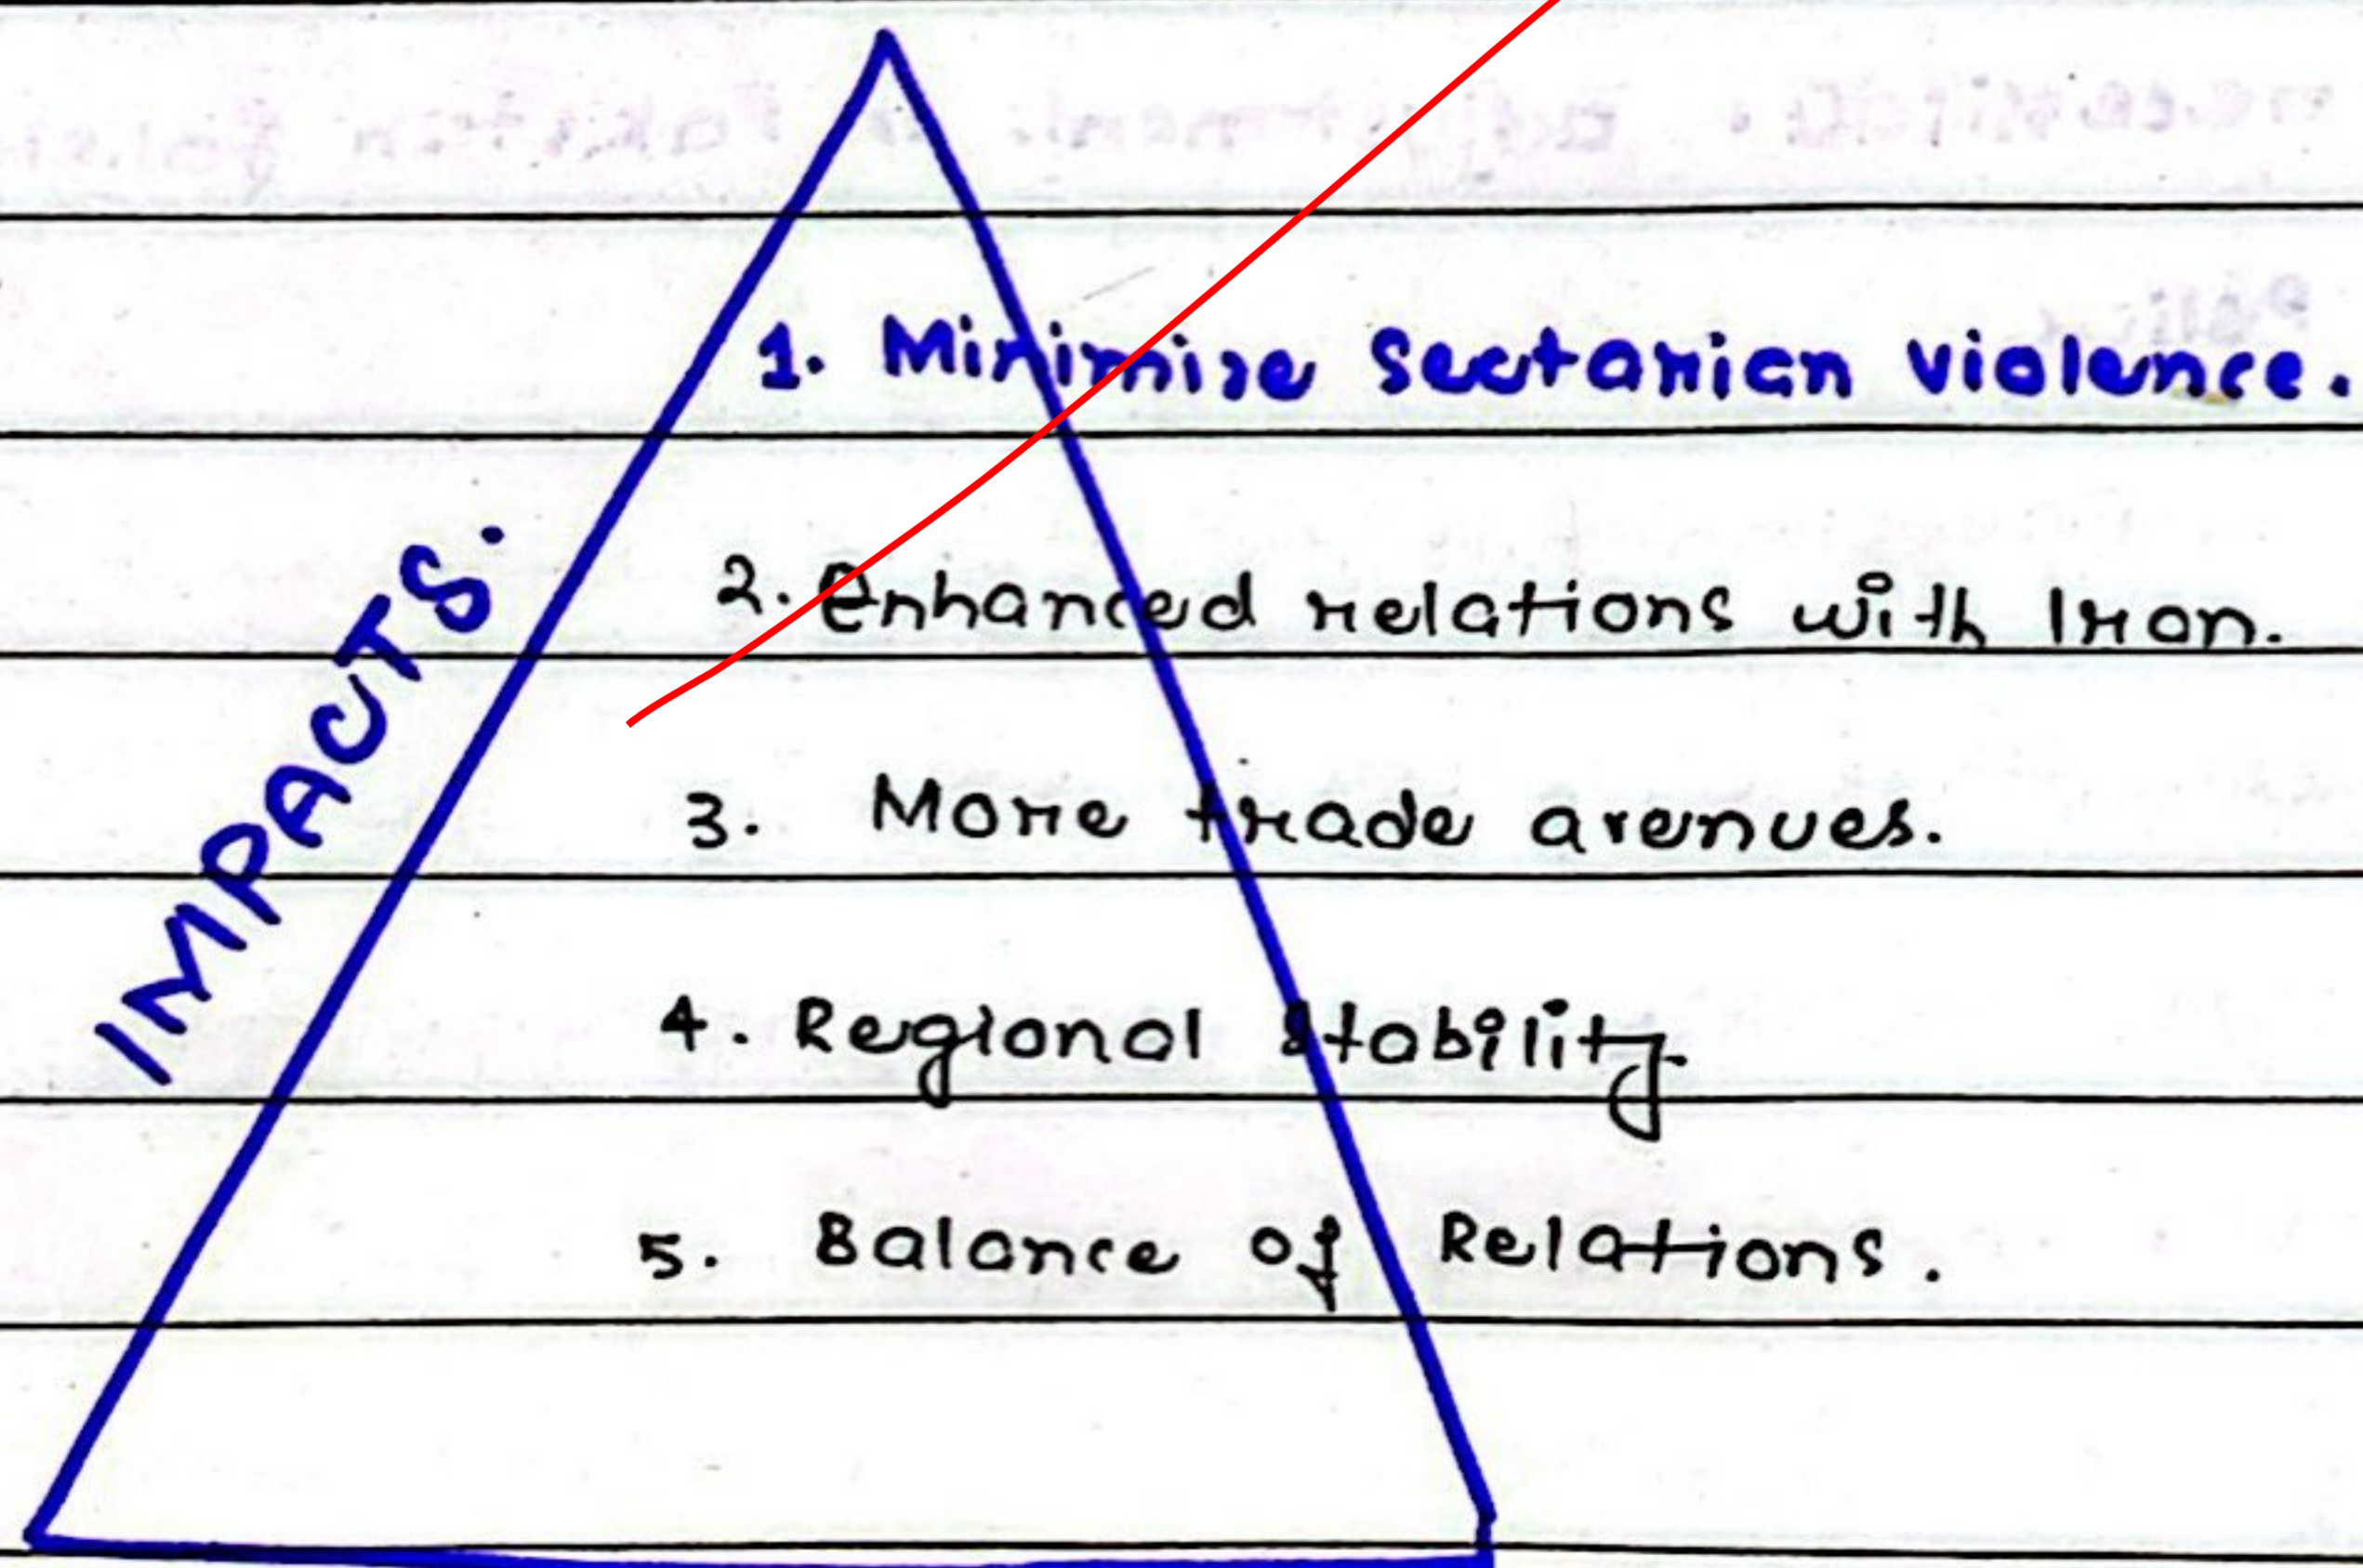 1. Minimize Sectarian violence.
IMPACTS.
2. Enhanced relations with Iran.
3. More trade avenues.
4. Regional Stability.
5. Balance of Relations.